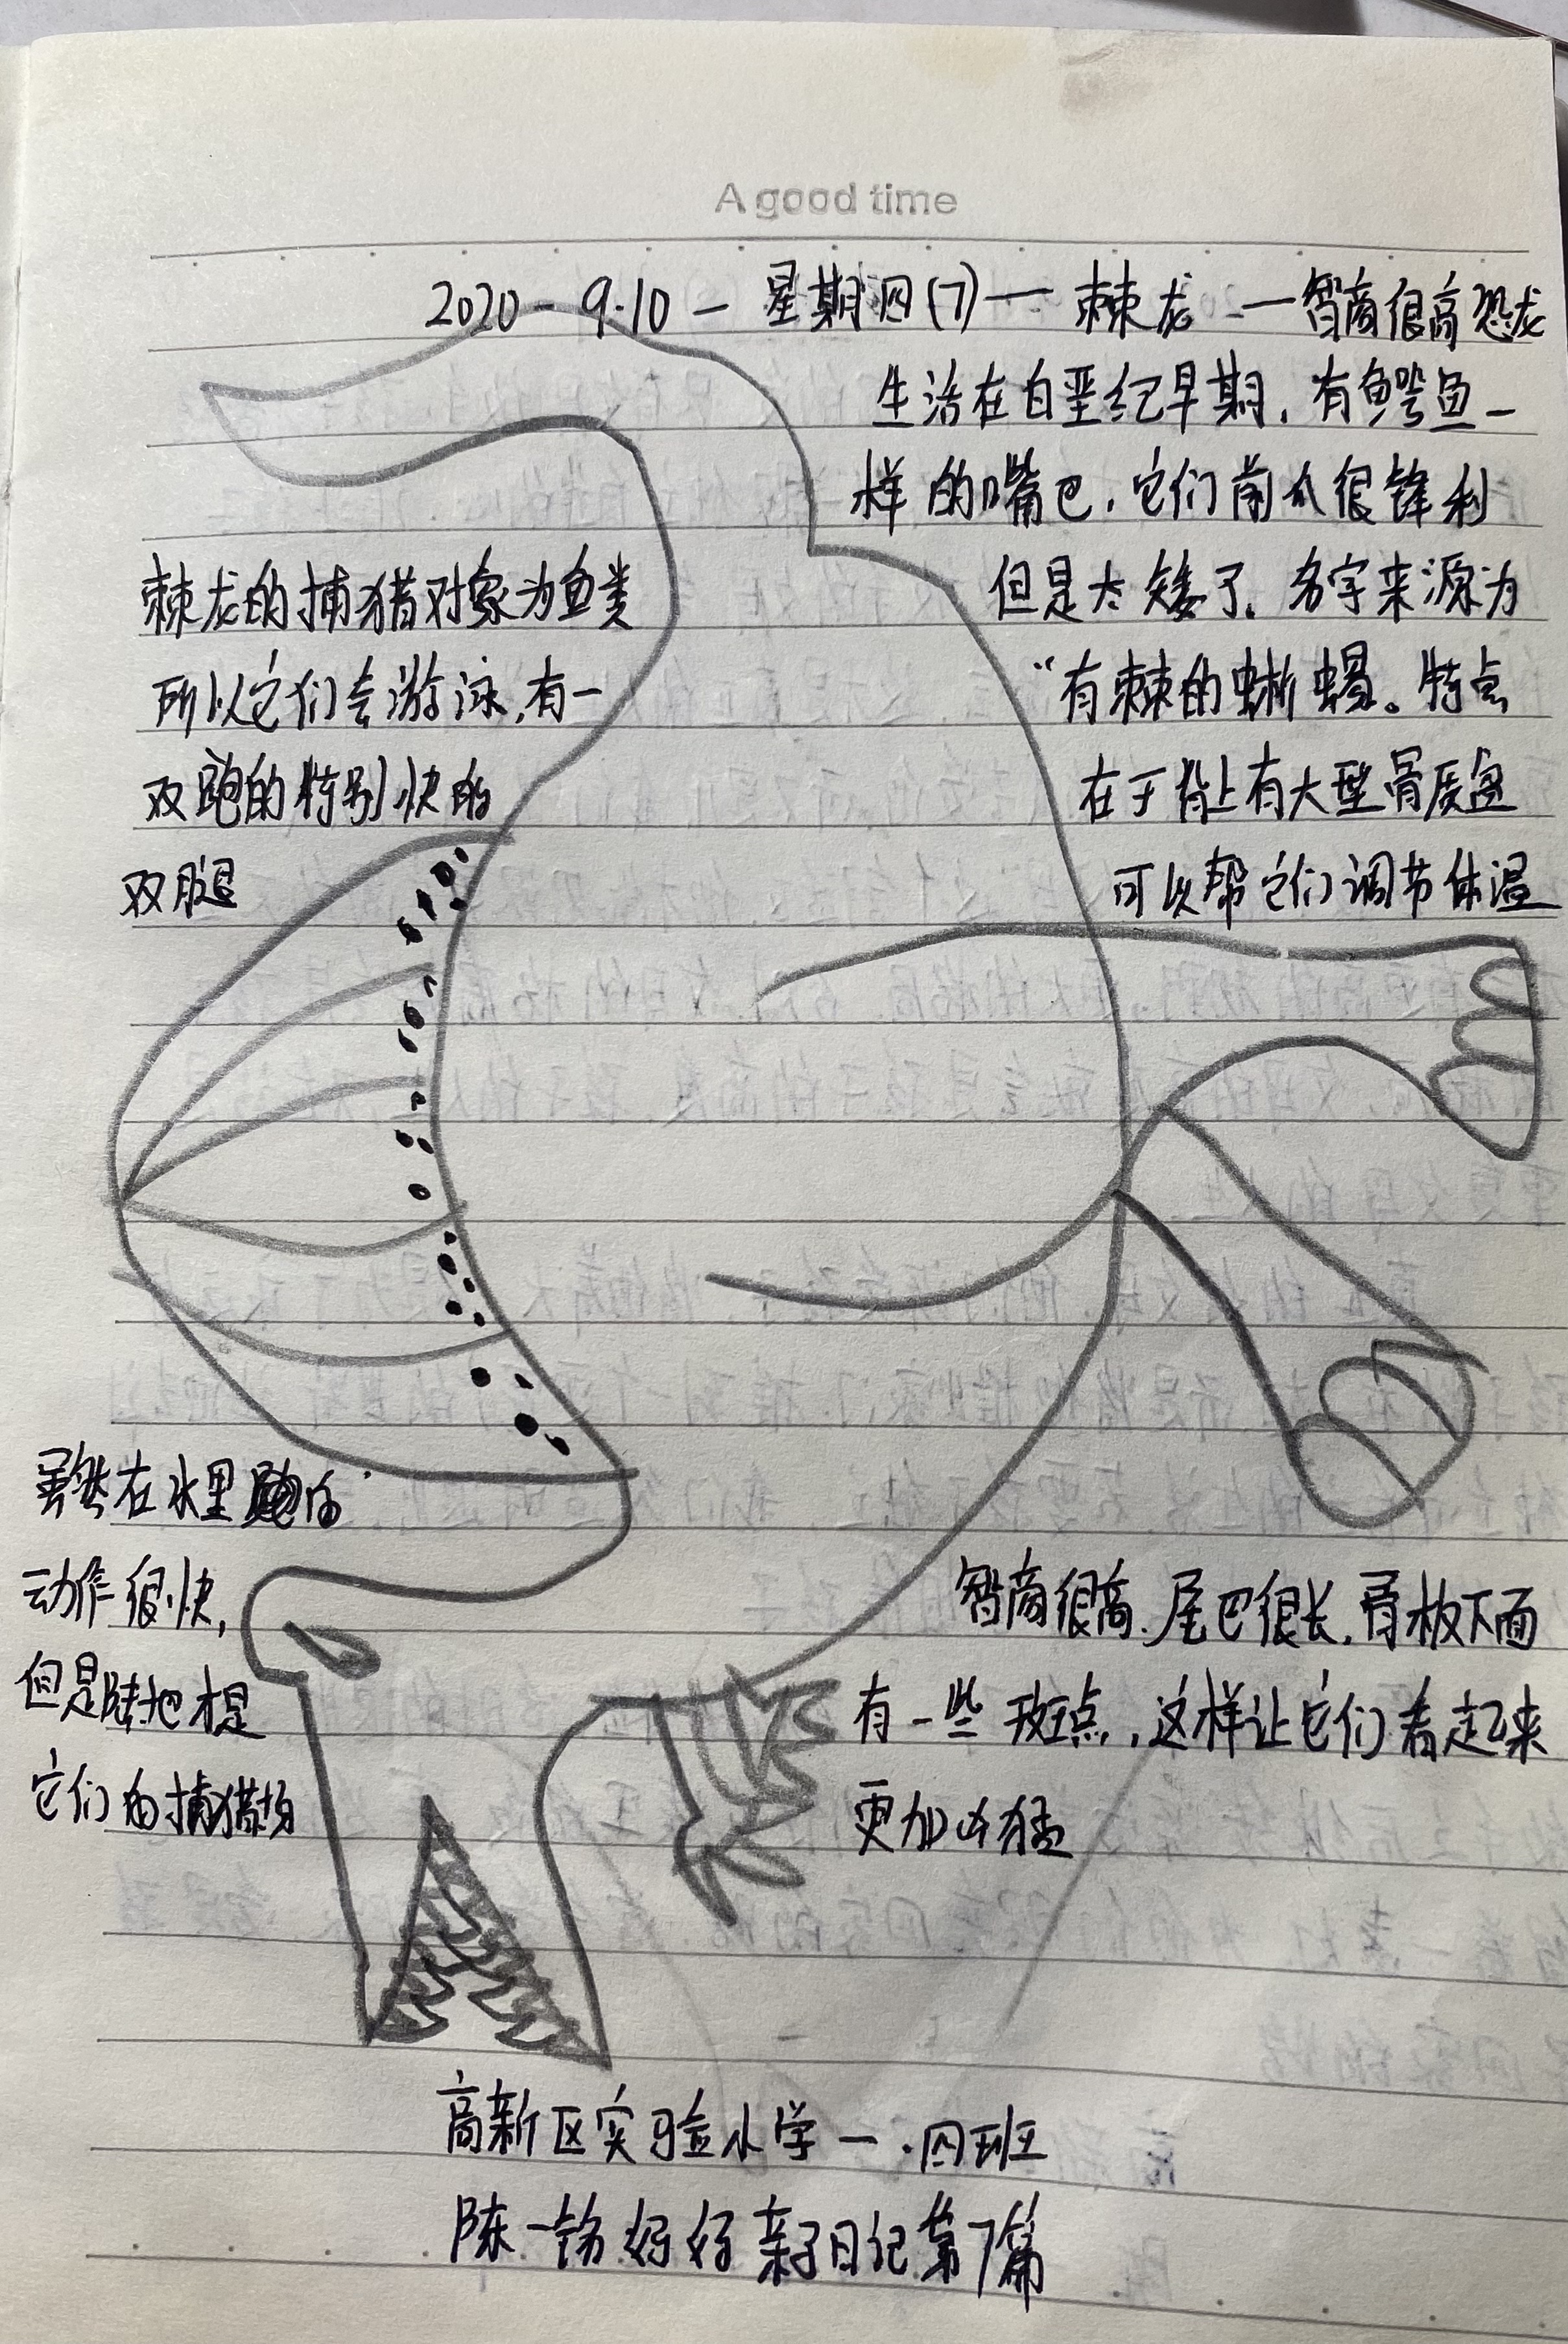 A good time
2020-9.10-星期四(7)—棘龙—智商很高恐龙
生活在白垩纪早期,有鳄鱼一
样的嘴巴,它们前爪很锋利
但是太矮了,名字来源为
"有棘的蜥蜴。特点
在于背上有大型骨质
可以帮它们调节体温
棘龙的捕猎对象为鱼类
所以它们会游泳,有一
双跑的特别快的
双腿
虽然在水里的
动作很快,
但是陆地才是
它们的捕猎场
智商很高,尾巴很长,骨板下面
有一些斑点,这样让它们看起来
更加凶猛
高新区实验小学一.四班
陈一 好好亲子日记第7篇